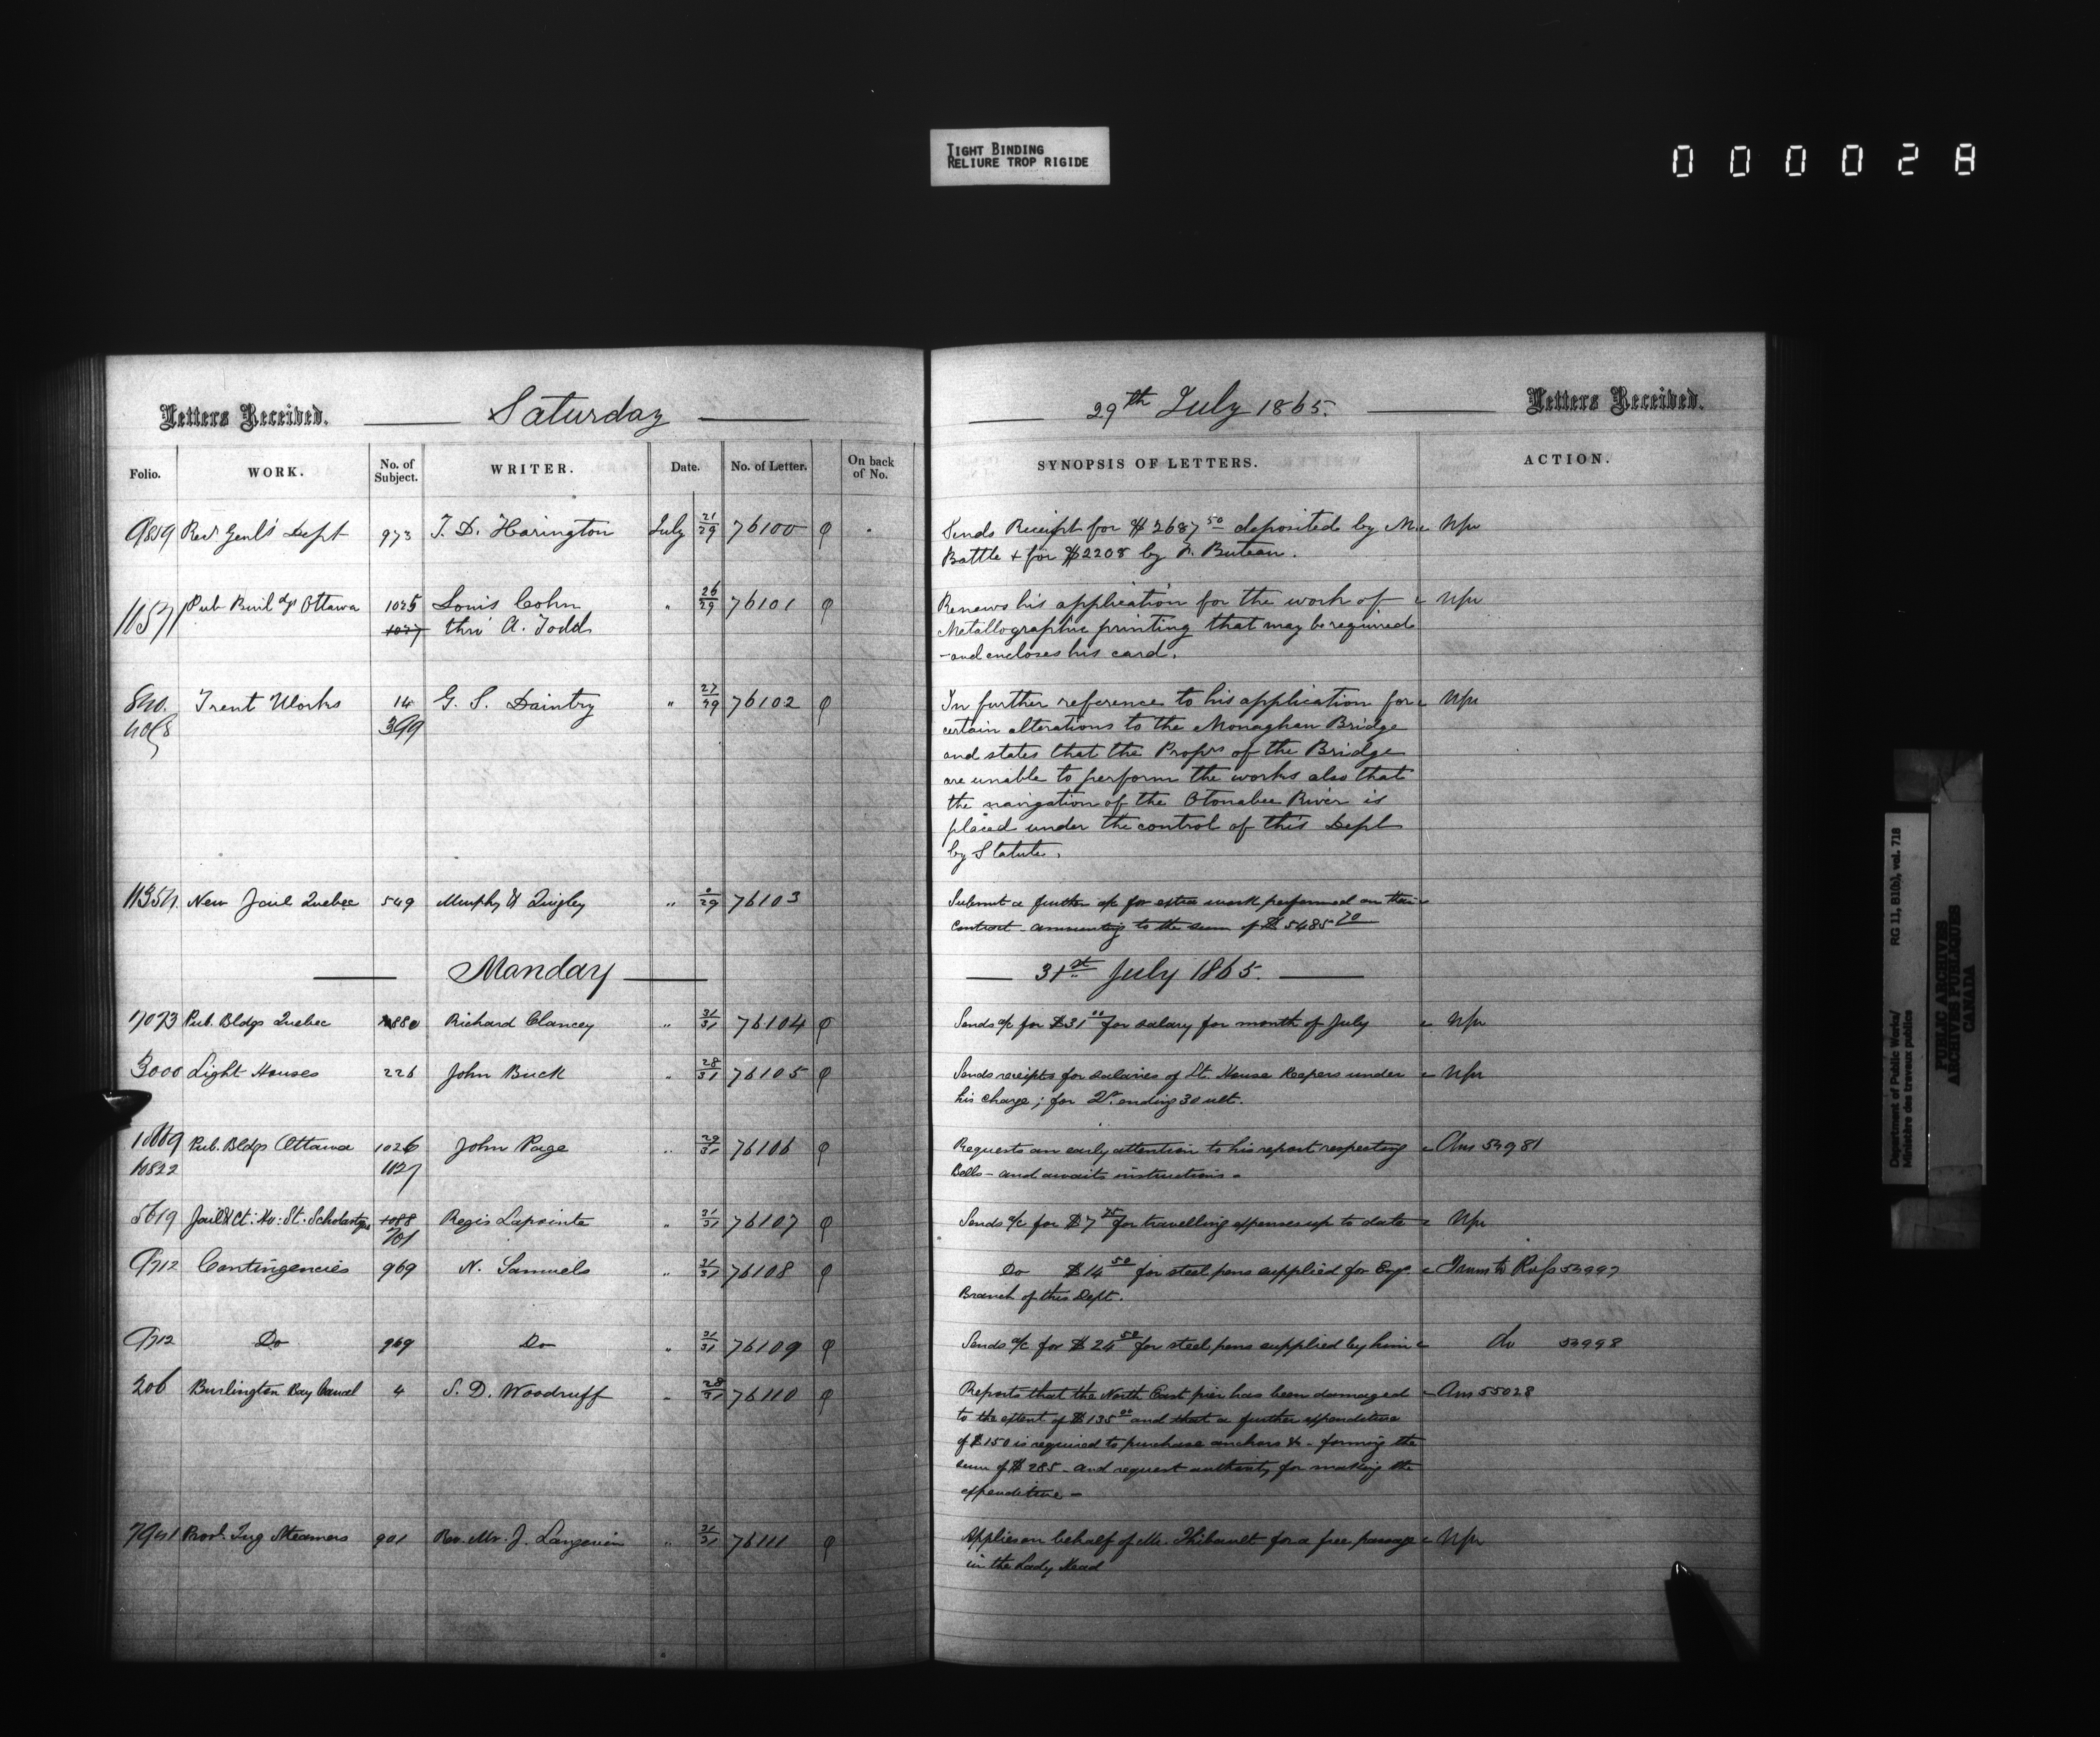 TIGHT BINDING
RELIURE TROP RIGIDE
000028
Letters Received. Saturday 29th July 1865. Letters Received.
Folio. WORK. No. of Subject. WRITER. Date. No. of Letter. On back of No. SYNOPSIS OF LETTERS. ACTION.
9859 Recr Genl's Dept 973 T. D. Harington July 21/29 76100 φ Sends Receipt for $2687 50 deposited by M. Npr
Battle + for $2208 by N. Buteau.
11571 Pub Buildgs Ottawa 1025 Louis Cohn " 26/29 76101 φ Renews his application for the work of Npr
1027 thro' A. Todd Metallographic printing that may be required
- and encloses his card.
840. Trent Works 14 G. S. Daintry " 27/29 76102 φ In further reference to his application for Npr
399 certain alterations to the Monaghan Bridge
and states that the Proprs of the Bridge
are unable to perform the works also that
the navigation of the Otonabee River is
placed under the control of this Dept
by Statute.
11354. New Jail Quebec 549 Murphy & Quigley " "/29 76103 Submit a further a/c for extra work performed on their
Contract - amounting to the sum of $5485 70
Monday 31st July 1865.
7073 Pub. Bldgs Quebec 880 Richard Clancey " 31/31 76104 φ Sends a/c for $31 00 for salary for month of July Npr
3000 Light Houses 226 John Buck " 28/31 76105 φ Sends receipts for salaries of Lt. House Keepers under Npr
his charge; for 2r ending 30 ult.
10669 Pub. Bldgs Ottawa 1026 John Page " 29/31 76106 φ Requests an early attention to his report respecting Ans 54981
10822 1027 Bells - and awaits instructions -
5619 Jail & Ct: Ho: St. Scholastique 1088 Regis Lapointe " 31/31 76107 φ Sends a/c for $7 75 for travelling expenses up to date Npr
701
9712 Contingencies 969 N. Samuels " 31/31 76108 φ Do $14 50 for steel pens supplied for Engr 54997
Branch of this Dept.
9712 Do 969 Do " 31/31 76109 φ Sends a/c for $24 50 for steel pens supplied by him do 54998
206 Burlington Bay Canal 4 S. D. Woodruff " 28/31 76110 φ Reports that the North East pier has been damaged Ans 55028
to the extent of $135 00 and that a further expenditure
of $150 is required to purchase anchors &c - forming the
sum of $285 - and request authority for making the
expenditure -
7941 Provl Tug Steamers 901 Rev. Mr. J. Langevin " 31/31 76111 φ Applies on behalf of Mr. Thibault for a free passage Npr
in the Lady Head
Department of Public Works/ RG 11, B1(b), vol. 718
Ministère des travaux publics
PUBLIC ARCHIVES
ARCHIVES PUBLIQUES
CANADA